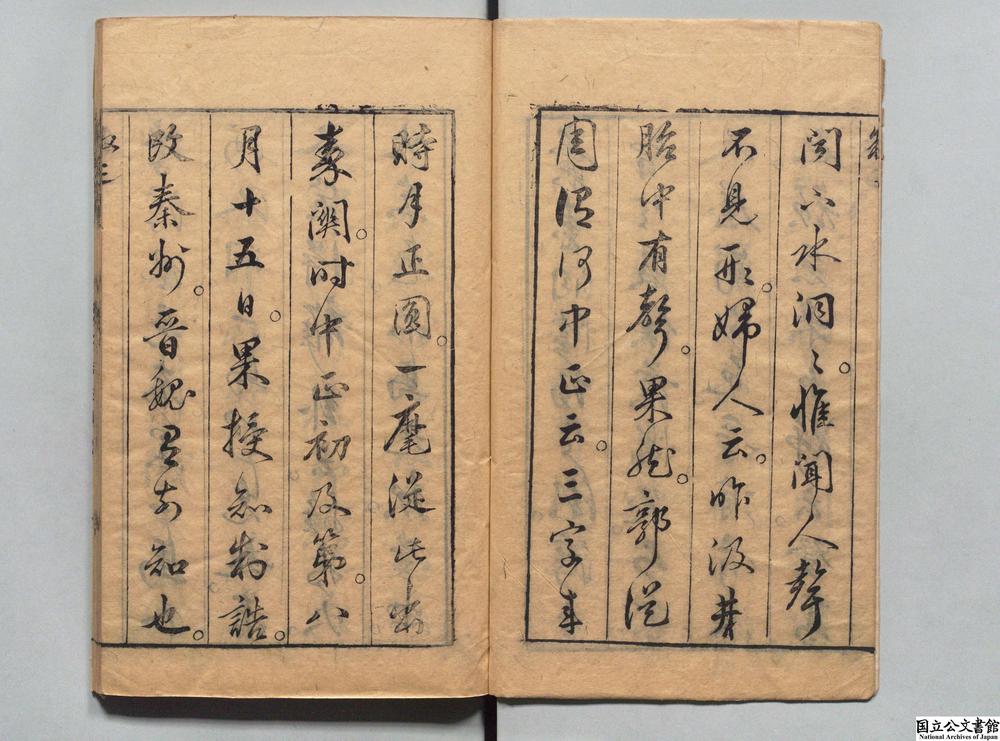 水洞〻。惟聞人聲
不見形。婦人云。昨汲井
胎中有聲。果然。郭從
周謂何中正云。三字来
時月正圓。一麾從此出
秦關。时中正初及第。八
月十五日。果授知制誥。
改秦州。晉魏前知也。
国立公文書館
National Archives of Japan